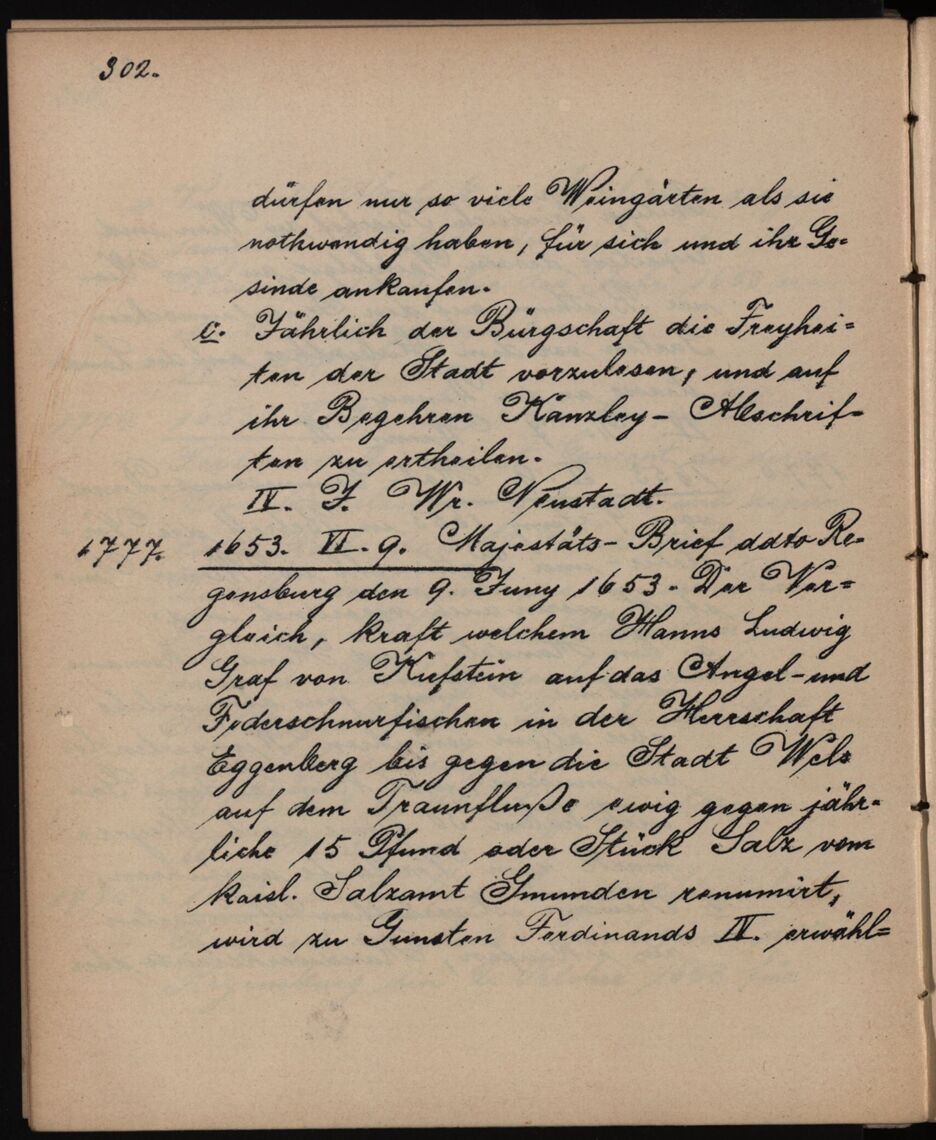 302.
dürfen nur so viele Weingärten als sie
nothwendig haben, für sich und ihr Ge=
sinde ankaufen.
c. Jährlich der Bürgschaft die Freyhei=
ten der Stadt vorzulesen, und auf
ihr Begehren Kanzley- Abschrif=
ten zu ertheilen.
IV. J. Wr. Neustadt.
1777. 1653. VI. 9. Majestäts- Brief ddto Re=
gensburg den 9. Juny 1653. Der Ver=
gleich, kraft welchem Hanns Ludwig
Graf von Kufstein auf das Angel- und
Federschnurfischen in der Herrschaft
Eggenberg bis gegen die Stadt Wels
auf dem Traunfluße ewig gegen jähr=
liche 15 Pfund oder Stück Salz vom
kaisl. Salzamt Gmunden renumirt,
wird zu Gunsten Ferdinands IV. erwähl=